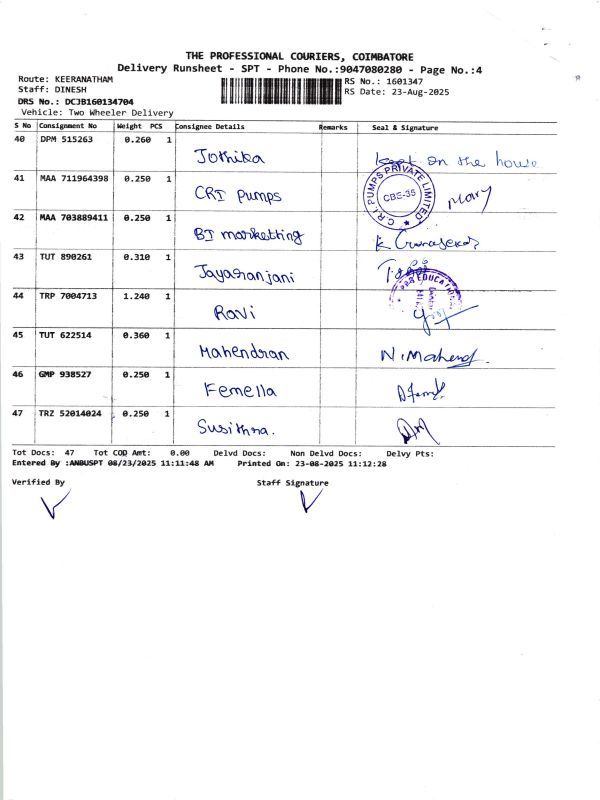 THE PROFESSIONAL COURIERS, COIMBATORE
Delivery Runsheet - SPT - Phone No.:9047080280 - Page No.:4
Route: KEERANATHAM
RS No.: 1601347
Staff: DINESH
RS Date: 23-Aug-2025
DRS No.: DCJB160134704
Vehicle: Two Wheeler Delivery
S No Consignment No Weight PCS Consignee Details Remarks Seal & Signature
40 DPM 515263 0.260 1 Jothika kept on the house
41 MAA 711964398 0.250 1 CRI Pumps C.R.I. PUMPS PRIVATE LIMITED CBE-35 Mary
42 MAA 703889411 0.250 1 BI marketting
43 TUT 890261 0.310 1 Jayaranjani
44 TRP 7004713 1.240 1 Ravi
45 TUT 622514 0.360 1 Mahendran N.Mahend
46 GMP 938527 0.250 1 Femella
47 TRZ 52014024 0.250 1 Susithra.
Tot Docs: 47 Tot COD Amt: 0.00 Delvd Docs: Non Delvd Docs: Delvy Pts:
Entered By :ANBUSPT 08/23/2025 11:11:48 AM Printed On: 23-08-2025 11:12:28
Verified By Staff Signature